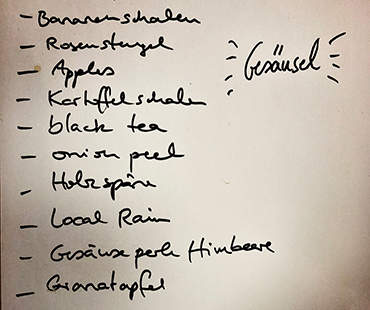 - Bananenschalen
- Rosenstengel
- Apples
- Kartoffelschalen
- black tea
- onion peel
- Holzspäne
- Local Rain
- Gesäuseperle Himbeere
- Granatapfel
Gesäusel